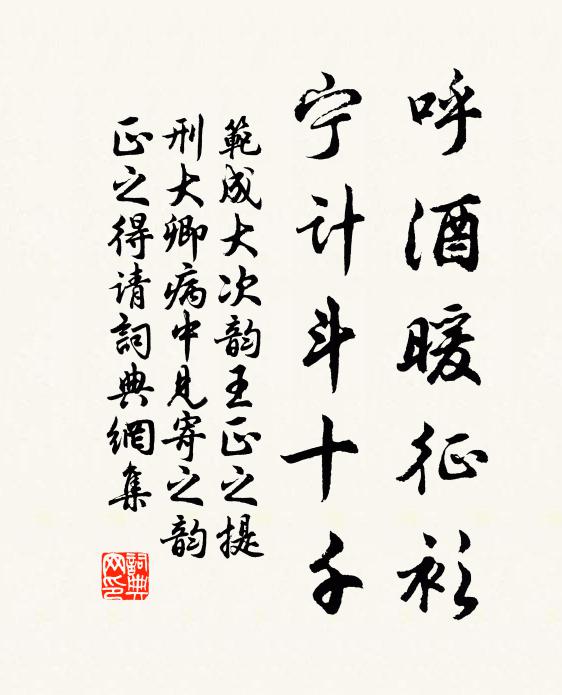 呼酒暖征衫
宁计斗十千
範成大次韵王正之提
刑大卿病中見寄之韵
正之得请詞典網集
詞典网印